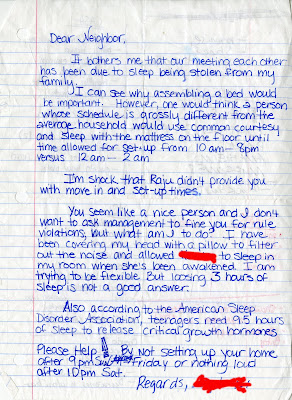 Dear Neighbor,
It bothers me that our meeting each other
has been due to sleep being stolen from my
family.
I can see why assembling a bed would
be important. However, one would think a person
whose schedule is grossly different from the
average household would use common courtesy
and sleep with the mattress on the floor until
time allowed for set-up from 10am-8pm
versus 12am-2am.
I'm shock that Raju didn't provide you
with move in and set-up times.
You seem like a nice person and I don't
want to ask management to fine you for rule
violations, but what am I to do? I have
been covering my head with a pillow to filter
out the noise and allowed to sleep in
my room when she's been awakened. I am
trying to be flexible. But loosing 3 hours of
sleep is not a good answer.
Also according to the American Sleep
Disorder Association, teenagers need 9.5 hours
of sleep to release critical growth hormones
Please Help! By not setting up your home
after 9pm Sun Friday or nothing loud
after 10pm Sat.
Regards,